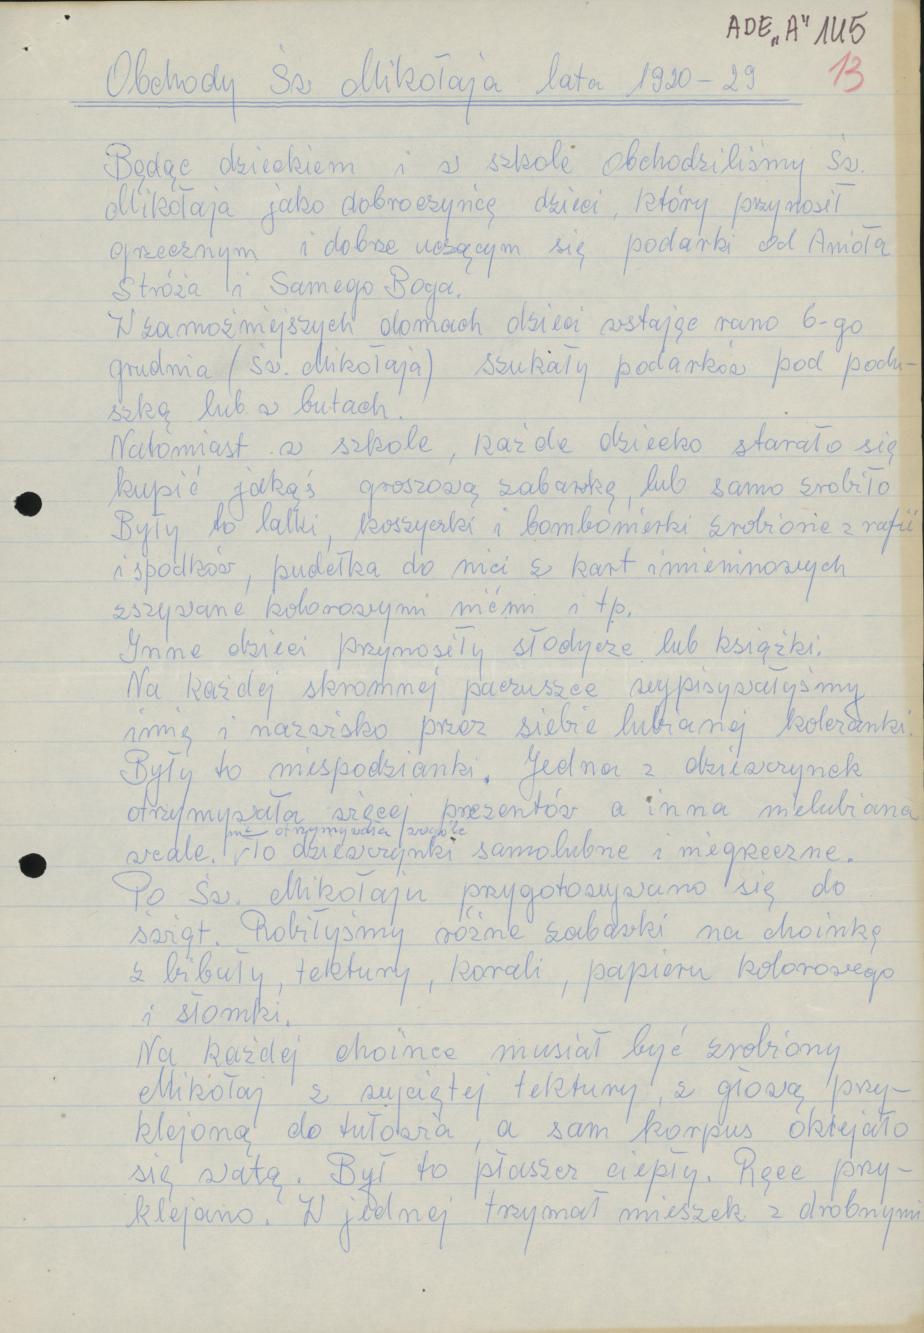 ADE „A" 145
13
Obchody Św Mikołaja lata 1920-29
Będąc dzieckiem i w szkole obchodziliśmy Św.
Mikołaja jako dobroczyńcę dzieci, który przynosił
grzecznym i dobrze uczącym się podarki od Anioła
Stróża i Samego Boga.
W zamożniejszych domach dzieci wstając rano 6-go
grudnia (św. Mikołaja) szukały podarków pod podu-
szką lub w butach.
Natomiast w szkole, każde dziecko starało się
kupić jakąś groszową zabawkę, lub samo zrobiło
Były to lalki, koszyczki i bombonierki zrobione z rafii
i spodków, pudełka do nici z kart imieninowych
zszywane kolorowymi nićmi i tp.
Inne dzieci przynosiły słodycze lub książki.
Na każdej skromnej paczuszce wypisywałyśmy
imię i nazwisko przez siebie lubianej koleżanki.
Były to niespodzianki. Jedna z dziewczynek
otrzymywała więcej prezentów a inna nielubiana
nie otrzymywała wogóle
wcale. to dziewczynki samolubne i niegrzeczne.
Po Św. Mikołaju przygotowywano się do
świąt. Robiłyśmy różne zabawki na choinkę
z bibuły, tektury, korali, papieru kolorowego
i słomki.
Na każdej choince musiał być zrobiony
Mikołaj z wyciętej tektury, z głową przy-
klejoną do tułowia, a sam korpus oklejało
się watą. Był to płaszcz ciepły. Ręce przy-
klejano. W jednej trzymał mieszek z drobnymi